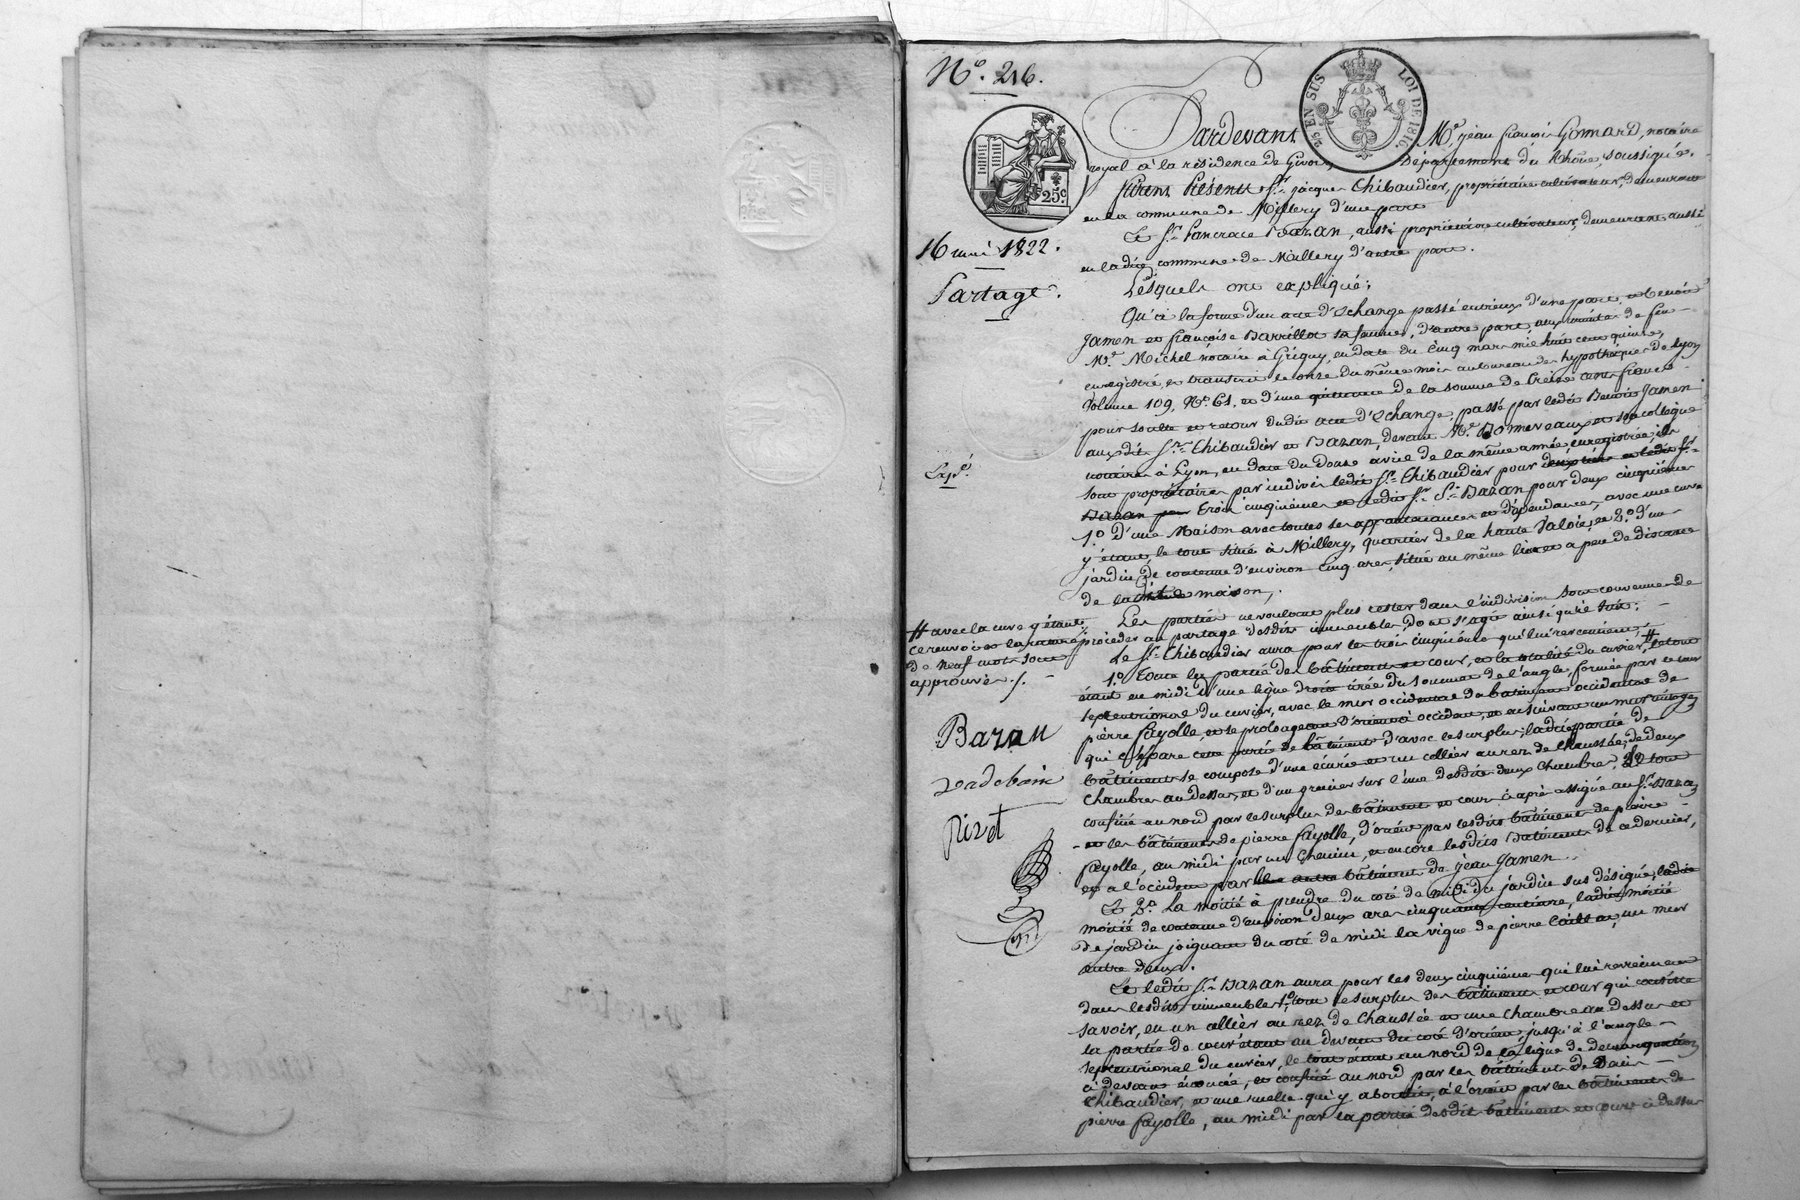 N.º 216.
25 EN SUS LOI DE 1816.
25c.
Pardevant Me. jean françois Gonnard, notaire
royal à la résidence de Givors, département du Rhône, soussigné.
furent Présents Sr. jacques Thibaudier, propriétaire cultivateur, demeurant
en la commune de Millery d'une part
Et Sr. Pancrace Bazan, aussi propriétaire cultivateur, demeurant aussi
en ladite commune de Millery d'autre part.
16 mai 1822.
Partage.
Lesquels ont expliqué:
Qu'à la forme d'un acte d'échange passé entr'eux d'une part, et benoit
Jamen et françoise Barrillot sa femme, d'autre part, aux minutes de feu
Me. Michel notaire à Grigny, en date du cinq mars mil huit cent quinze,
enregistré, et transcrit le onze du même mois au bureau des hypothèques de Lyon
Volume 109, N.º 61, et d'une quittance de la somme de treize cents francs
pour soulte et retour dudit acte d'échange, passé par ledit Benoit Jamen
auxdits Srs. Thibaudier et Bazan, devant Me. et son collègue
notaires à Lyon, en date du douze avril de la même année enregistrée; ils
sont propriétaires par indivis ledit Sr. Thibaudier pour et ledit Sr.
Bazan pour trois cinquièmes et ledit Sr. Bazan pour deux cinquièmes
Expé.
1.º d'une Maison avec toutes ses appartenances et dépendances, avec une cuve
y étant, le tout situé à Millery, quartier de la haute Valois, et 2.º d'un
jardin de contenue d'environ cinq ares, situé au même lieu et a peu de distance
de ladite maison,
Les parties ne voulant plus rester dans l'indivision sont convenues de
procéder au partage desdits immeubles, dont s'agit ainsi qu'il suit:
# avec la cuve y étant,
ce renvoi et la rature
de neuf mots sont
approuvés ./.
Bazan
Pizot
Le Sr. Thibaudier aura pour les trois cinquièmes qui lui reviennent,
1.º Toute la partie de bâtiment et cour, et la totalité du cuvier, # le tout
étant au midi d'une ligne droite tirée du sommet de l'angle, formée par le mur
septentrional du cuvier, avec le mur occidental du bâtiment occidental de
pierre fayolle, et se prolongeant d'orient à occident, et en suivant un mur mitoyen
qui sépare cette partie de bâtiment d'avec le surplus; ladite partie de
bâtiment se compose d'une écurie et un cellier au rez de chaussée, de deux
chambres au dessus, et d'un grenier sur l'une desdites deux chambres, le tout
confiné au nord par le surplus de bâtiment et cour ci après assigné au Sr. Bazan
et les bâtiments de pierre fayolle, d'orient par lesdits bâtiments de pierre
fayolle, au midi par un chemin, et encore lesdits bâtiments de ce dernier,
et à l'occident par bâtiment de jean Jamen.
Et 2.º La moitié à prendre du coté de midi du jardin sus désigné, ladite
moitié de contenue d'environ deux ares cinquante centiares, ladite moitié
de jardin joignant du coté de midi la vigne de pierre un mur
entre deux.
Et ledit Sr. Bazan aura pour les deux cinquièmes qui lui reviennent
dans lesdits immeubles 1.º tout le surplus des bâtiments et cour qui consiste
savoir, en un cellier au rez de chaussée et une chambre au dessus et
la partie de cour étant au devant du coté d'orient jusqu'à l'angle
septentrional du cuvier, le tout étant au nord de la ligne de démarquation
ci devant énoncée, et confiné au nord par les bâtiments de
Thibaudier, et une ruelle qui y aboutit, à l'orient par les bâtiments de
pierre fayolle, au midi par la partie desdits bâtiments et cour ci dessus